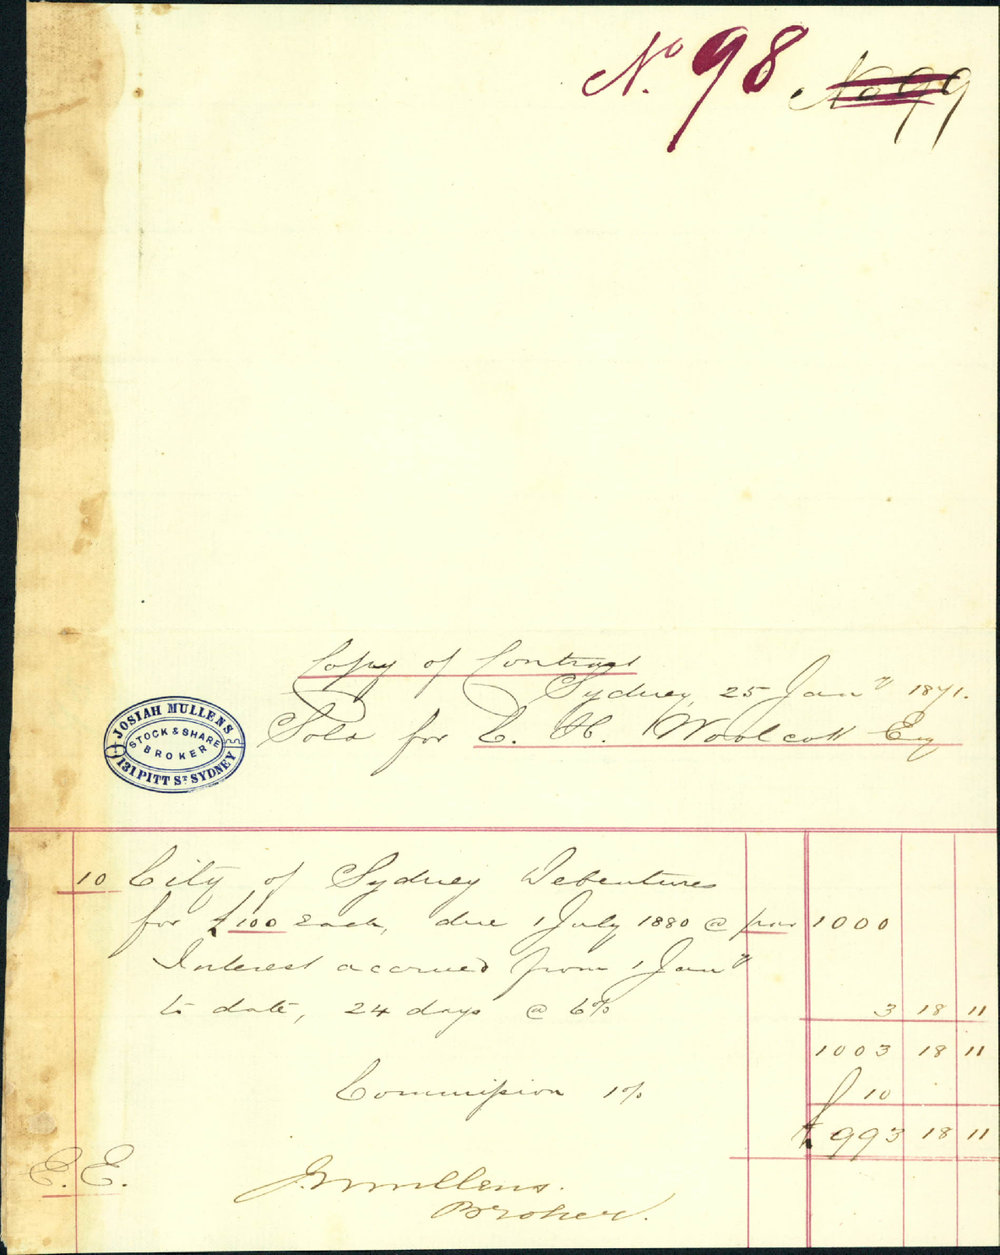 No. 98 No 99
Copy of Contract
Sydney, 25 Jany 1871.
Sold for C. H. Woolcott Esq
JOSIAH MULLENS
STOCK & SHARE
BROKER
131 PITT ST SYDNEY
10 City of Sydney Debentures
for £100 each, due 1 July 1880 @ par 1000
Interest accrued from 1 Jany
to date, 24 days @ 6% 3 18 11
1003 18 11
Commission 1% 10
£ 993 18 11
E. E.
J Mullens.
Broker.